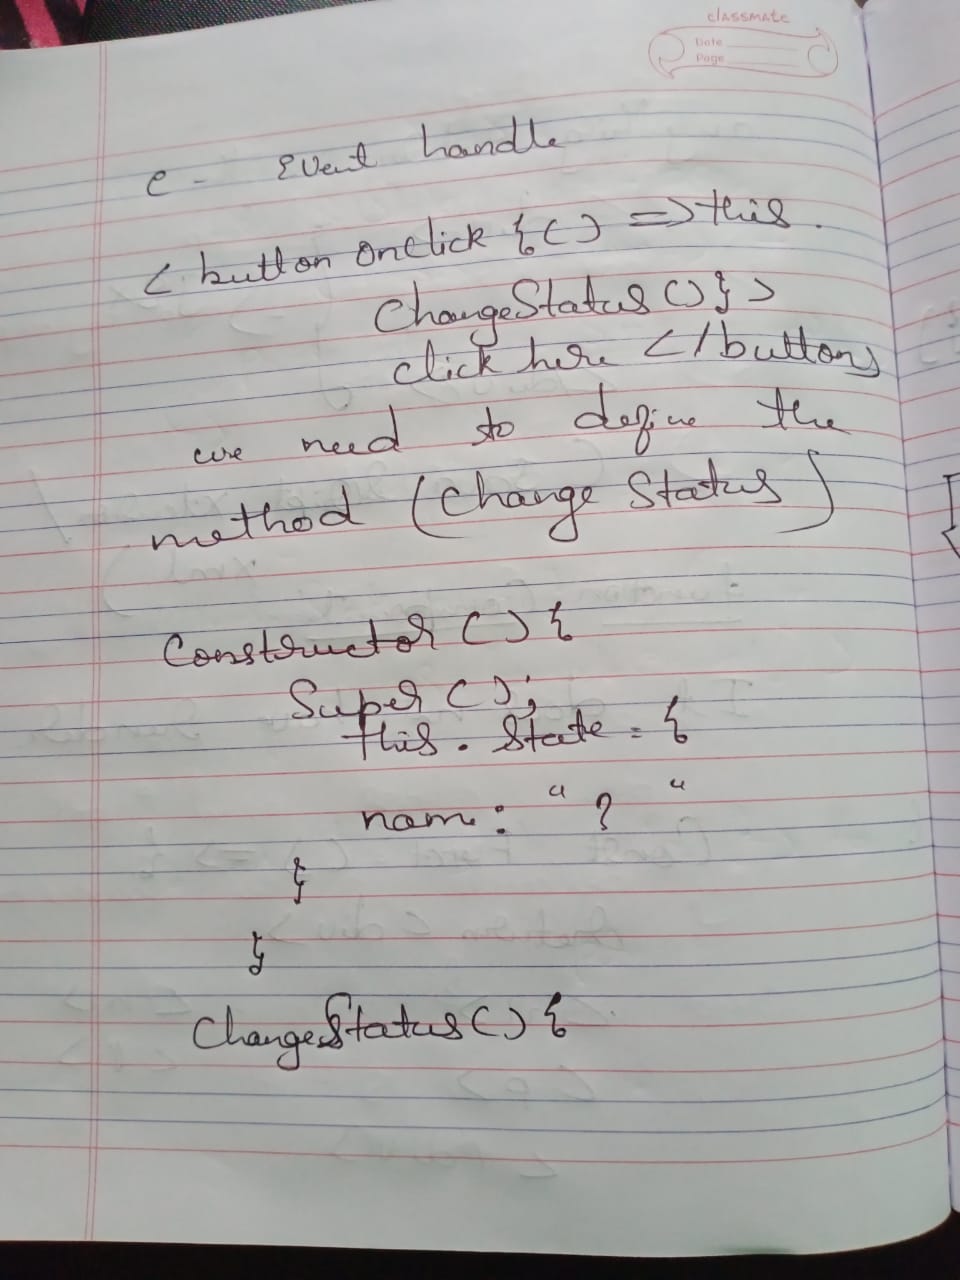 classmate
Date
Page
e - Event handle
< button onclick {() => this.
ChangeStatus () } >
click here </button>
we need to define the
method (Change Status)
Constructor () {
Super ();
this . State = {
name : " ? "
}
}
ChangeStatus () {